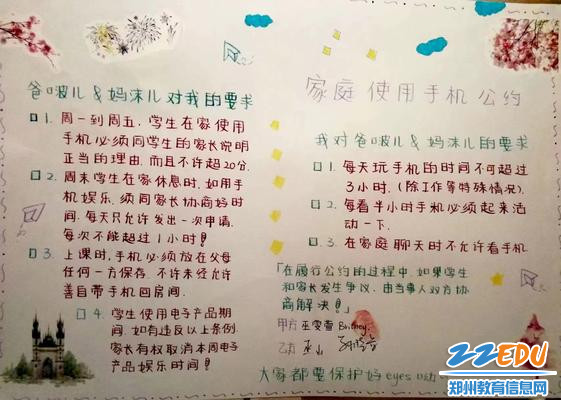 家庭使用手机公约
爸啵儿&妈沫儿对我的要求
1. 周一到周五,学生在家使用
手机必须同学生的家长说明
正当的理由,而且不许超20分.
2. 周末学生在家休息时,如用手
机娱乐,须同家长协商好时
间,每天只允许发出一次申请,
每次不能超过1小时!
3. 上课时,手机必须放在父母
任何一方保存,不许未经允许
善自带手机回房间.
4. 学生使用电子产品期
间,如有违反以上条例.
家长有权取消本周电子
产品娱乐时间!
我对爸啵儿&妈沫儿的要求
1. 每天玩手机的时间不可超过
3小时.(除工作等特殊情况).
2. 每看半小时手机必须起来活
动一下.
3. 在家庭聊天时不允许看手机
「在履行公约的过程中,如果学生
和家长发生争议,由当事人双方协
商解决!」
甲方 Britney.
乙方
大家都要保护好eyes
22EDU
郑州教育信息网